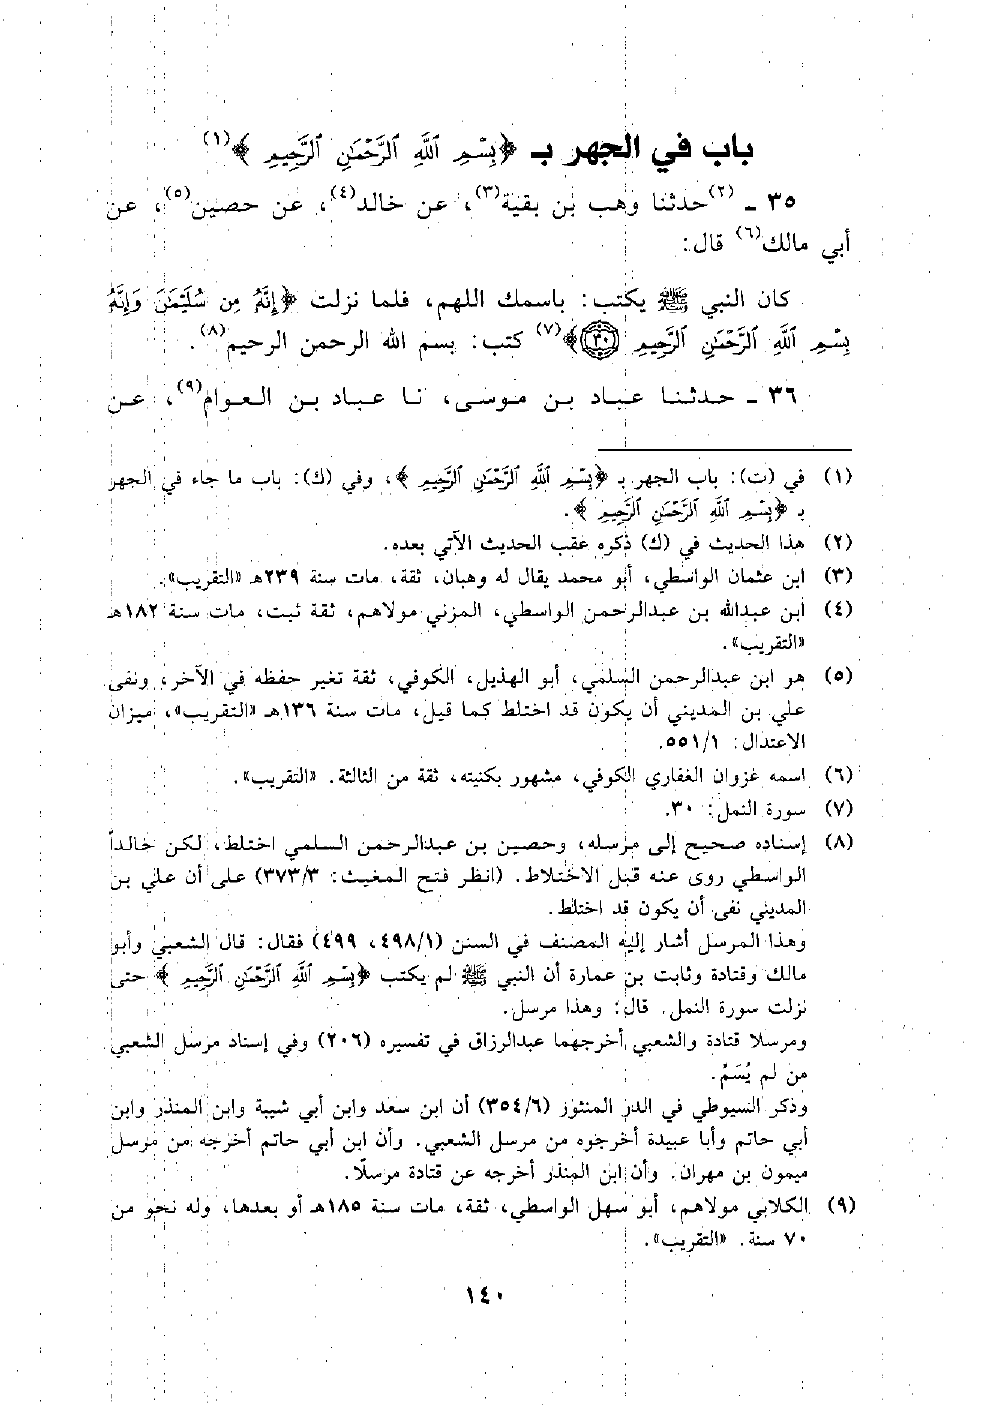 باب في الجهر بـ ﴿بِسْمِ ٱللَّهِ ٱلرَّحْمَٰنِ ٱلرَّحِيمِ﴾(١)
٣٥ ـ (٢)حدثنا وهب بن بقية(٣)، عن خالد(٤)، عن حصين(٥)، عن
أبي مالك(٦) قال:
كان النبي ﷺ يكتب: باسمك اللهم، فلما نزلت ﴿إِنَّهُ مِن سُلَيْمَٰنَ وَإِنَّهُ
بِسْمِ ٱللَّهِ ٱلرَّحْمَٰنِ ٱلرَّحِيمِ ٣٠﴾(٧) كتب: بسم الله الرحمن الرحيم(٨).
٣٦ ـ حدثنا عباد بن موسى، نا عباد بن العوام(٩)، عن
(١) في (ت): باب الجهر بـ ﴿بِسْمِ ٱللَّهِ ٱلرَّحْمَٰنِ ٱلرَّحِيمِ﴾، وفي (ك): باب ما جاء في الجهر
بـ ﴿بِسْمِ ٱللَّهِ ٱلرَّحْمَٰنِ ٱلرَّحِيمِ﴾.
(٢) هذا الحديث في (ك) ذكره عقب الحديث الآتي بعده.
(٣) ابن عثمان الواسطي، أبو محمد يقال له وهبان، ثقة، مات سنة ٢٣٩هـ «التقريب».
(٤) ابن عبدالله بن عبدالرحمن الواسطي، المزني مولاهم، ثقة ثبت، مات سنة ١٨٢هـ
«التقريب».
(٥) هو ابن عبدالرحمن السلمي، أبو الهذيل، الكوفي، ثقة تغير حفظه في الآخر، ونفى
علي بن المديني أن يكون قد اختلط كما قيل، مات سنة ١٣٦هـ «التقريب»، ميزان
الاعتدال: ٥٥١/١.
(٦) اسمه غزوان الغفاري الكوفي، مشهور بكنيته، ثقة من الثالثة. «التقريب».
(٧) سورة النمل: ٣٠.
(٨) إسناده صحيح إلى مرسله، وحصين بن عبدالرحمن السلمي اختلط، لكن خالداً
الواسطي روى عنه قبل الاختلاط. (انظر فتح المغيث: ٣٧٣/٣) على أن علي بن
المديني نفى أن يكون قد اختلط.
وهذا المرسل أشار إليه المصنف في السنن (٤٩٨/١، ٤٩٩) فقال: قال الشعبي وأبو
مالك وقتادة وثابت بن عمارة أن النبي ﷺ لم يكتب ﴿بِسْمِ ٱللَّهِ ٱلرَّحْمَٰنِ ٱلرَّحِيمِ﴾ حتى
نزلت سورة النمل. قال: وهذا مرسل.
ومرسلا قتادة والشعبي أخرجهما عبدالرزاق في تفسيره (٢٠٦) وفي إسناد مرسل الشعبي
من لم يُسَمَّ.
وذكر السيوطي في الدر المنثور (٣٥٤/٦) أن ابن سعد وابن أبي شيبة وابن المنذر وابن
أبي حاتم وأبا عبيدة أخرجوه من مرسل الشعبي. وأن ابن أبي حاتم أخرجه من مرسل
ميمون بن مهران. وأن ابن المنذر أخرجه عن قتادة مرسلًا.
(٩) الكلابي مولاهم، أبو سهل الواسطي، ثقة، مات سنة ١٨٥هـ أو بعدها، وله نحو من
٧٠ سنة. «التقريب».
١٤٠